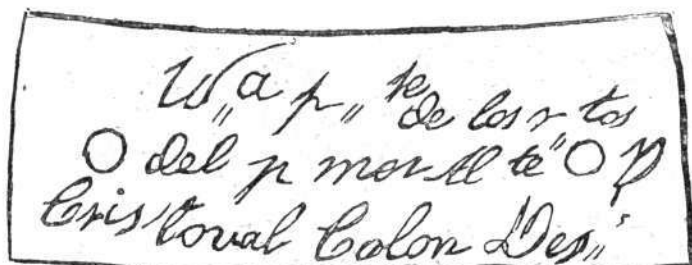 U,, a p,, te de los r tos
del p mer Al te" D
Cristoval Colon Des,,